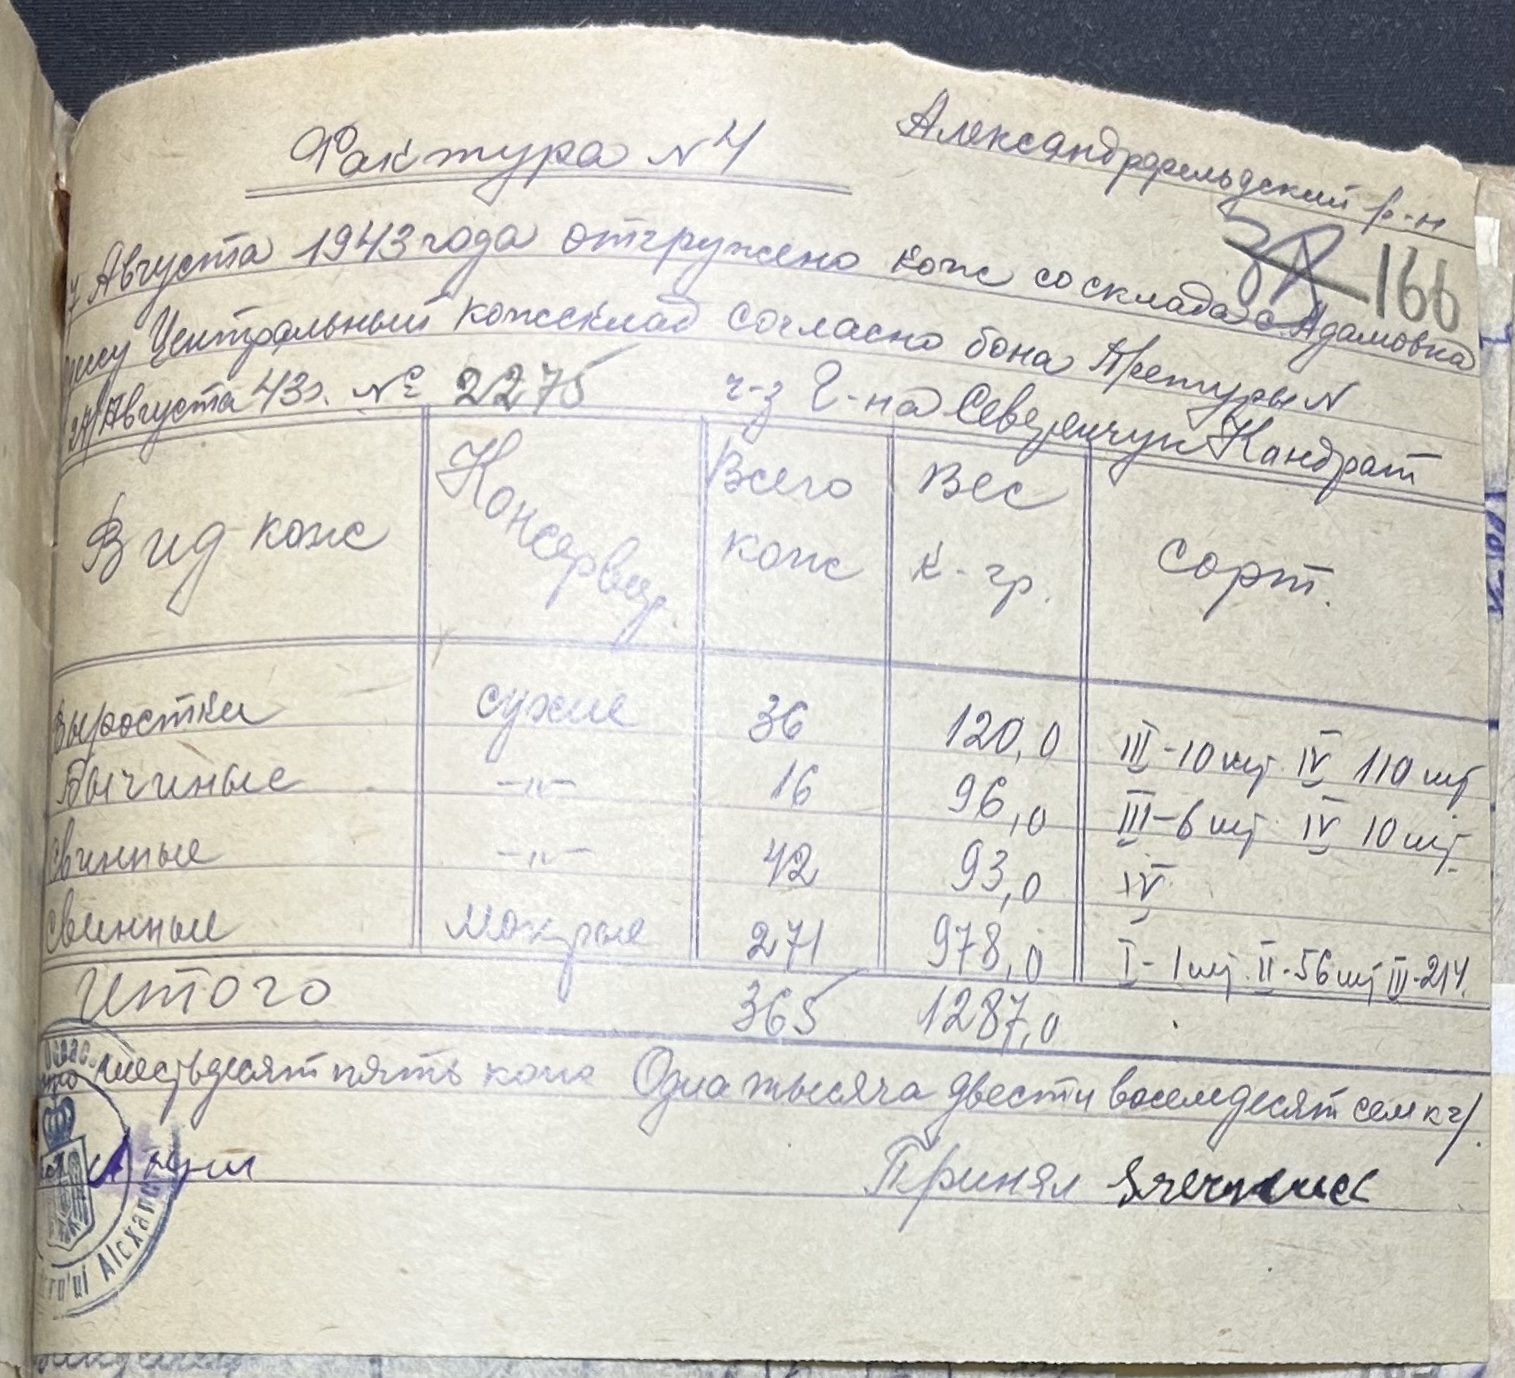 Александрфельдский р-н
Фактура №4
166
7 Августа 1943 года отгружено кож со склада с. Адамовка
Центральный кожсклад согласно бона Претуры N
27/Августа 43г. № 2275 ч-з Г-на Кандрат
Вид кож Консервир. Всего кож Вес к-гр. сорт.
Выростки сухие 36 120,0 III-10 шт IV 110 шт
Бычиные -"- 16 96,0 III-6 шт IV 10 шт.
Свинные -"- 42 93,0 IV
Свинные мокрые 271 978,0 I-1 шт. II-56 шт III-214.
Итого 365 1287,0
шестьдесят пять кож Одна тысяча двести восемдесят сем кг/.
Принял